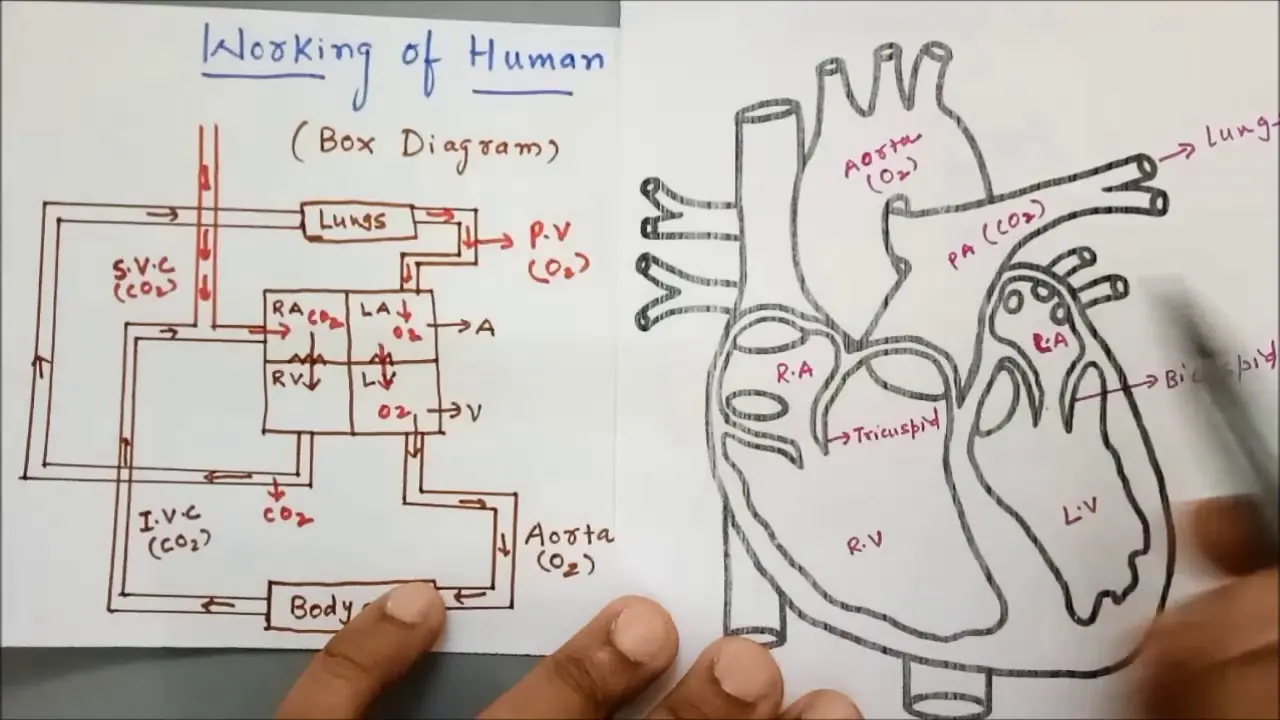 Working of Human
(Box Diagram)
Lungs
P.V
(O2)
S.V.C
(CO2)
RA CO2
LA
O2
A
RV
LV
O2
V
CO2
I.V.C
(CO2)
Aorta
(O2)
Body
Aorta
(O2)
Lung
PA (CO2)
R.A
L.A
Tricuspid
Bicuspid
R.V
L.V